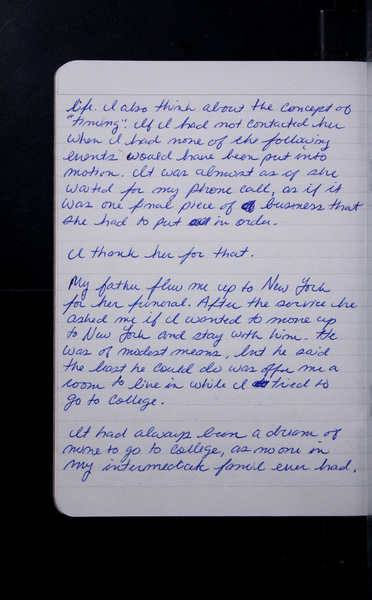 life. I also think about the concept of
"timing". If I had not contacted her
when I had none of the following
events would have been put into
motion. It was almost as if she
waited for my phone call, as if it
was one final piece of business that
she had to put in order.
I thank her for that.
My father flew me up to New York
for her funeral. After the service he
asked me if I wanted to move up
to New York and stay with him. He
was of modest means, but he said
the least he could do was offer me a
room to live in while I tried to
go to college.
It had always been a dream of
mine to go to college, as no one in
my intermediate famil ever had.